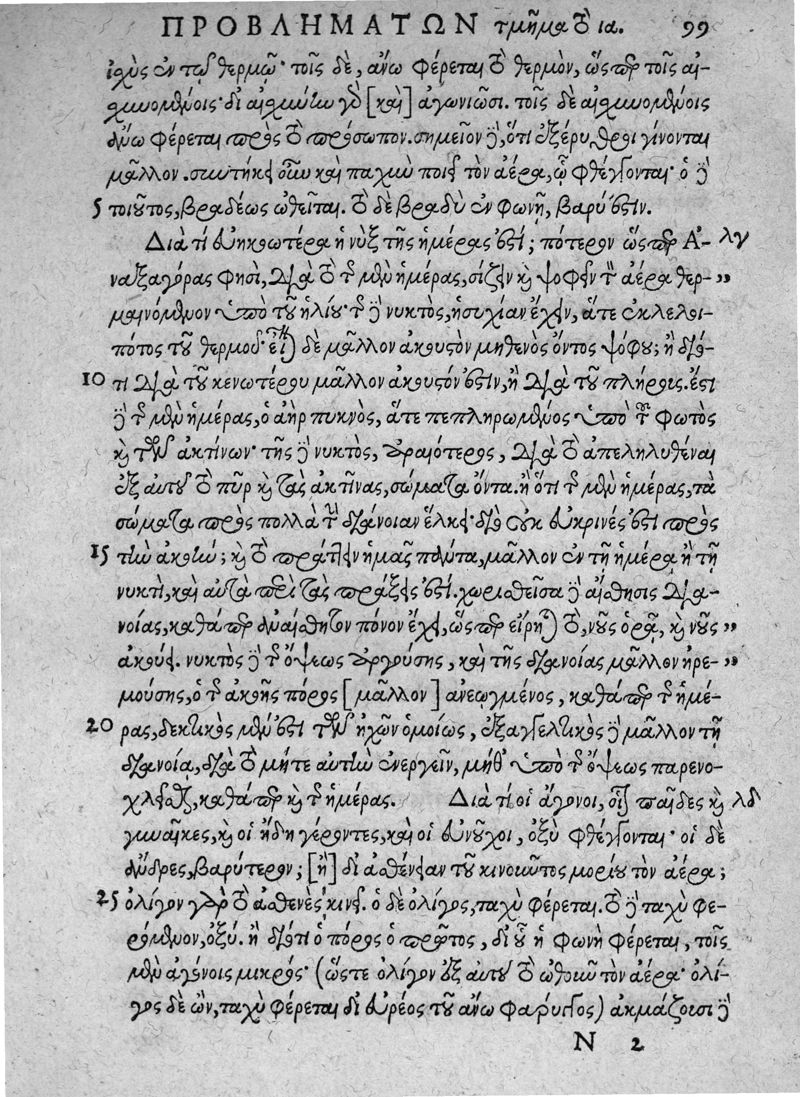 ΠΡΟΒΛΗΜΑΤΩΝ τμῆμα τὸ ια. 99
ἰχὺς ἐν τῷ θερμῷ· τοῖς δὲ, ἄνω φέρεται τὸ θερμὸν, ὥσπερ τοῖς αἰ-
χυνομένοις· δι᾽ αἰχύνην γὰρ [καὶ] ἀγωνιῶσι. τοῖς δὲ αἰχυνομένοις
ἄνω φέρεται πρὸς τὸ πρόσωπον. σημεῖον δὲ, ὅτι ἐξέρυθροι γίνονται
μᾶλλον. συντήκει οὖν καὶ παχὺν ποιεῖ τὸν ἀέρα, ᾧ φθέγγονται· ὁ δὲ
5 τοιοῦτος, βραδέως ὠθεῖται. τὸ δὲ βραδὺ ἐν φωνῇ, βαρύ ἐστιν.
Διὰ τί εὐηκοωτέρα ἡ νὺξ τῆς ἡμέρας ἐστί; πότερον ὥσπερ Ἀ- λγ
ναξαγόρας φησὶ, διὰ τὸ τῆς μὲν ἡμέρας, σίζειν καὶ ψοφεῖν τὸν ἀέρα θερ- ,,
μαινόμενον ὑπὸ τοῦ ἡλίου· τῆς δὲ νυκτὸς, ἡσυχίαν ἔχειν, ἅτε ἐκλελοι-
πότος τοῦ θερμοῦ· εἶναι δὲ μᾶλλον ἀκουστὸν μηθενὸς ὄντος ψόφου; ἢ διό-
10 τι διὰ τοῦ κενωτέρου μᾶλλον ἀκουστόν ἐστιν, ἢ διὰ τοῦ πλήρους. ἔστι
δὲ τῆς μὲν ἡμέρας, ὁ ἀὴρ πυκνὸς, ἅτε πεπληρωμένος ὑπὸ τοῦ φωτὸς
καὶ τῶν ἀκτίνων· τῆς δὲ νυκτὸς, ἀραιότερος, διὰ τὸ ἀπεληλυθέναι
ἐξ αὐτοῦ τὸ πῦρ καὶ τὰς ἀκτῖνας, σώματα ὄντα. ἢ ὅτι τῆς μὲν ἡμέρας, τὰ
σώματα πρὸς πολλὰ τὴν διάνοιαν ἕλκει· διὸ οὐκ εὐκρινές ἐστι πρὸς
15 τὴν ἀκοήν; καὶ τὸ πράττειν ἡμᾶς πάντα, μᾶλλον ἐν τῇ ἡμέρα ἢ τῇ
νυκτὶ, καὶ αὐτὰ περὶ τὰς πράξεις ἐστί. χωριθεῖσα δὲ αἴθησις δια-
νοίας, καθάπερ ἀναίθητον πόνον ἔχει, ὥσπερ εἴρηται τὸ, νοῦς ὁρᾷ, καὶ νοῦς ,,
ἀκούει. νυκτὸς δὲ τῆς ὄψεως ἀργούσης, καὶ τῆς διανοίας μᾶλλον ἠρε- ,,
μούσης, ὁ τῆς ἀκοῆς πόρος [μᾶλλον] ἀνεῳγμένος, καθάπερ τῆς ἡμέ-
20 ρας, δεκτικὸς μέν ἐστι τῶν ἤχων ὁμοίως, ἐξαγγελτικὸς δὲ μᾶλλον τῇ
διανοίᾳ, διὰ τὸ μήτε αὐτὴν ἐνεργεῖν, μήθ᾽ ὑπὸ τῆς ὄψεως παρενο-
χλεῖσθαι, καθάπερ καὶ τῆς ἡμέρας. Διὰ τί οἱ ἄγονοι, οἷον παῖδες καὶ λδ
γυναῖκες, καὶ οἱ ἤδη γέροντες, καὶ οἱ εὐνοῦχοι, ὀξὺ φθέγγονται· οἱ δὲ
ἄνδρες, βαρύτερον; [ἢ] δι᾽ ἀθένειαν τοῦ κινοῦντος μορίου τὸν ἀέρα;
25 ὀλίγον γὰρ τὸ ἀθενὲς κινεῖ. ὁ δὲ ὀλίγος, ταχὺ φέρεται. τὸ δὲ ταχὺ φε-
ρόμενον, ὀξύ. ἢ διότι ὁ πόρος ὁ πρῶτος, δι᾽ οὗ ἡ φωνὴ φέρεται, τοῖς
μὲν ἀγόνοις μικρός· (ὥστε ὀλίγον ἐξ αὐτοῦ τὸ ὠθοῦν τὸν ἀέρα· ὀλί-
γος δὲ ὢν, ταχὺ φέρεται δι᾽ εὐρέος τοῦ ἄνω φάρυγγος) ἀκμάζουσι δὲ
N 2